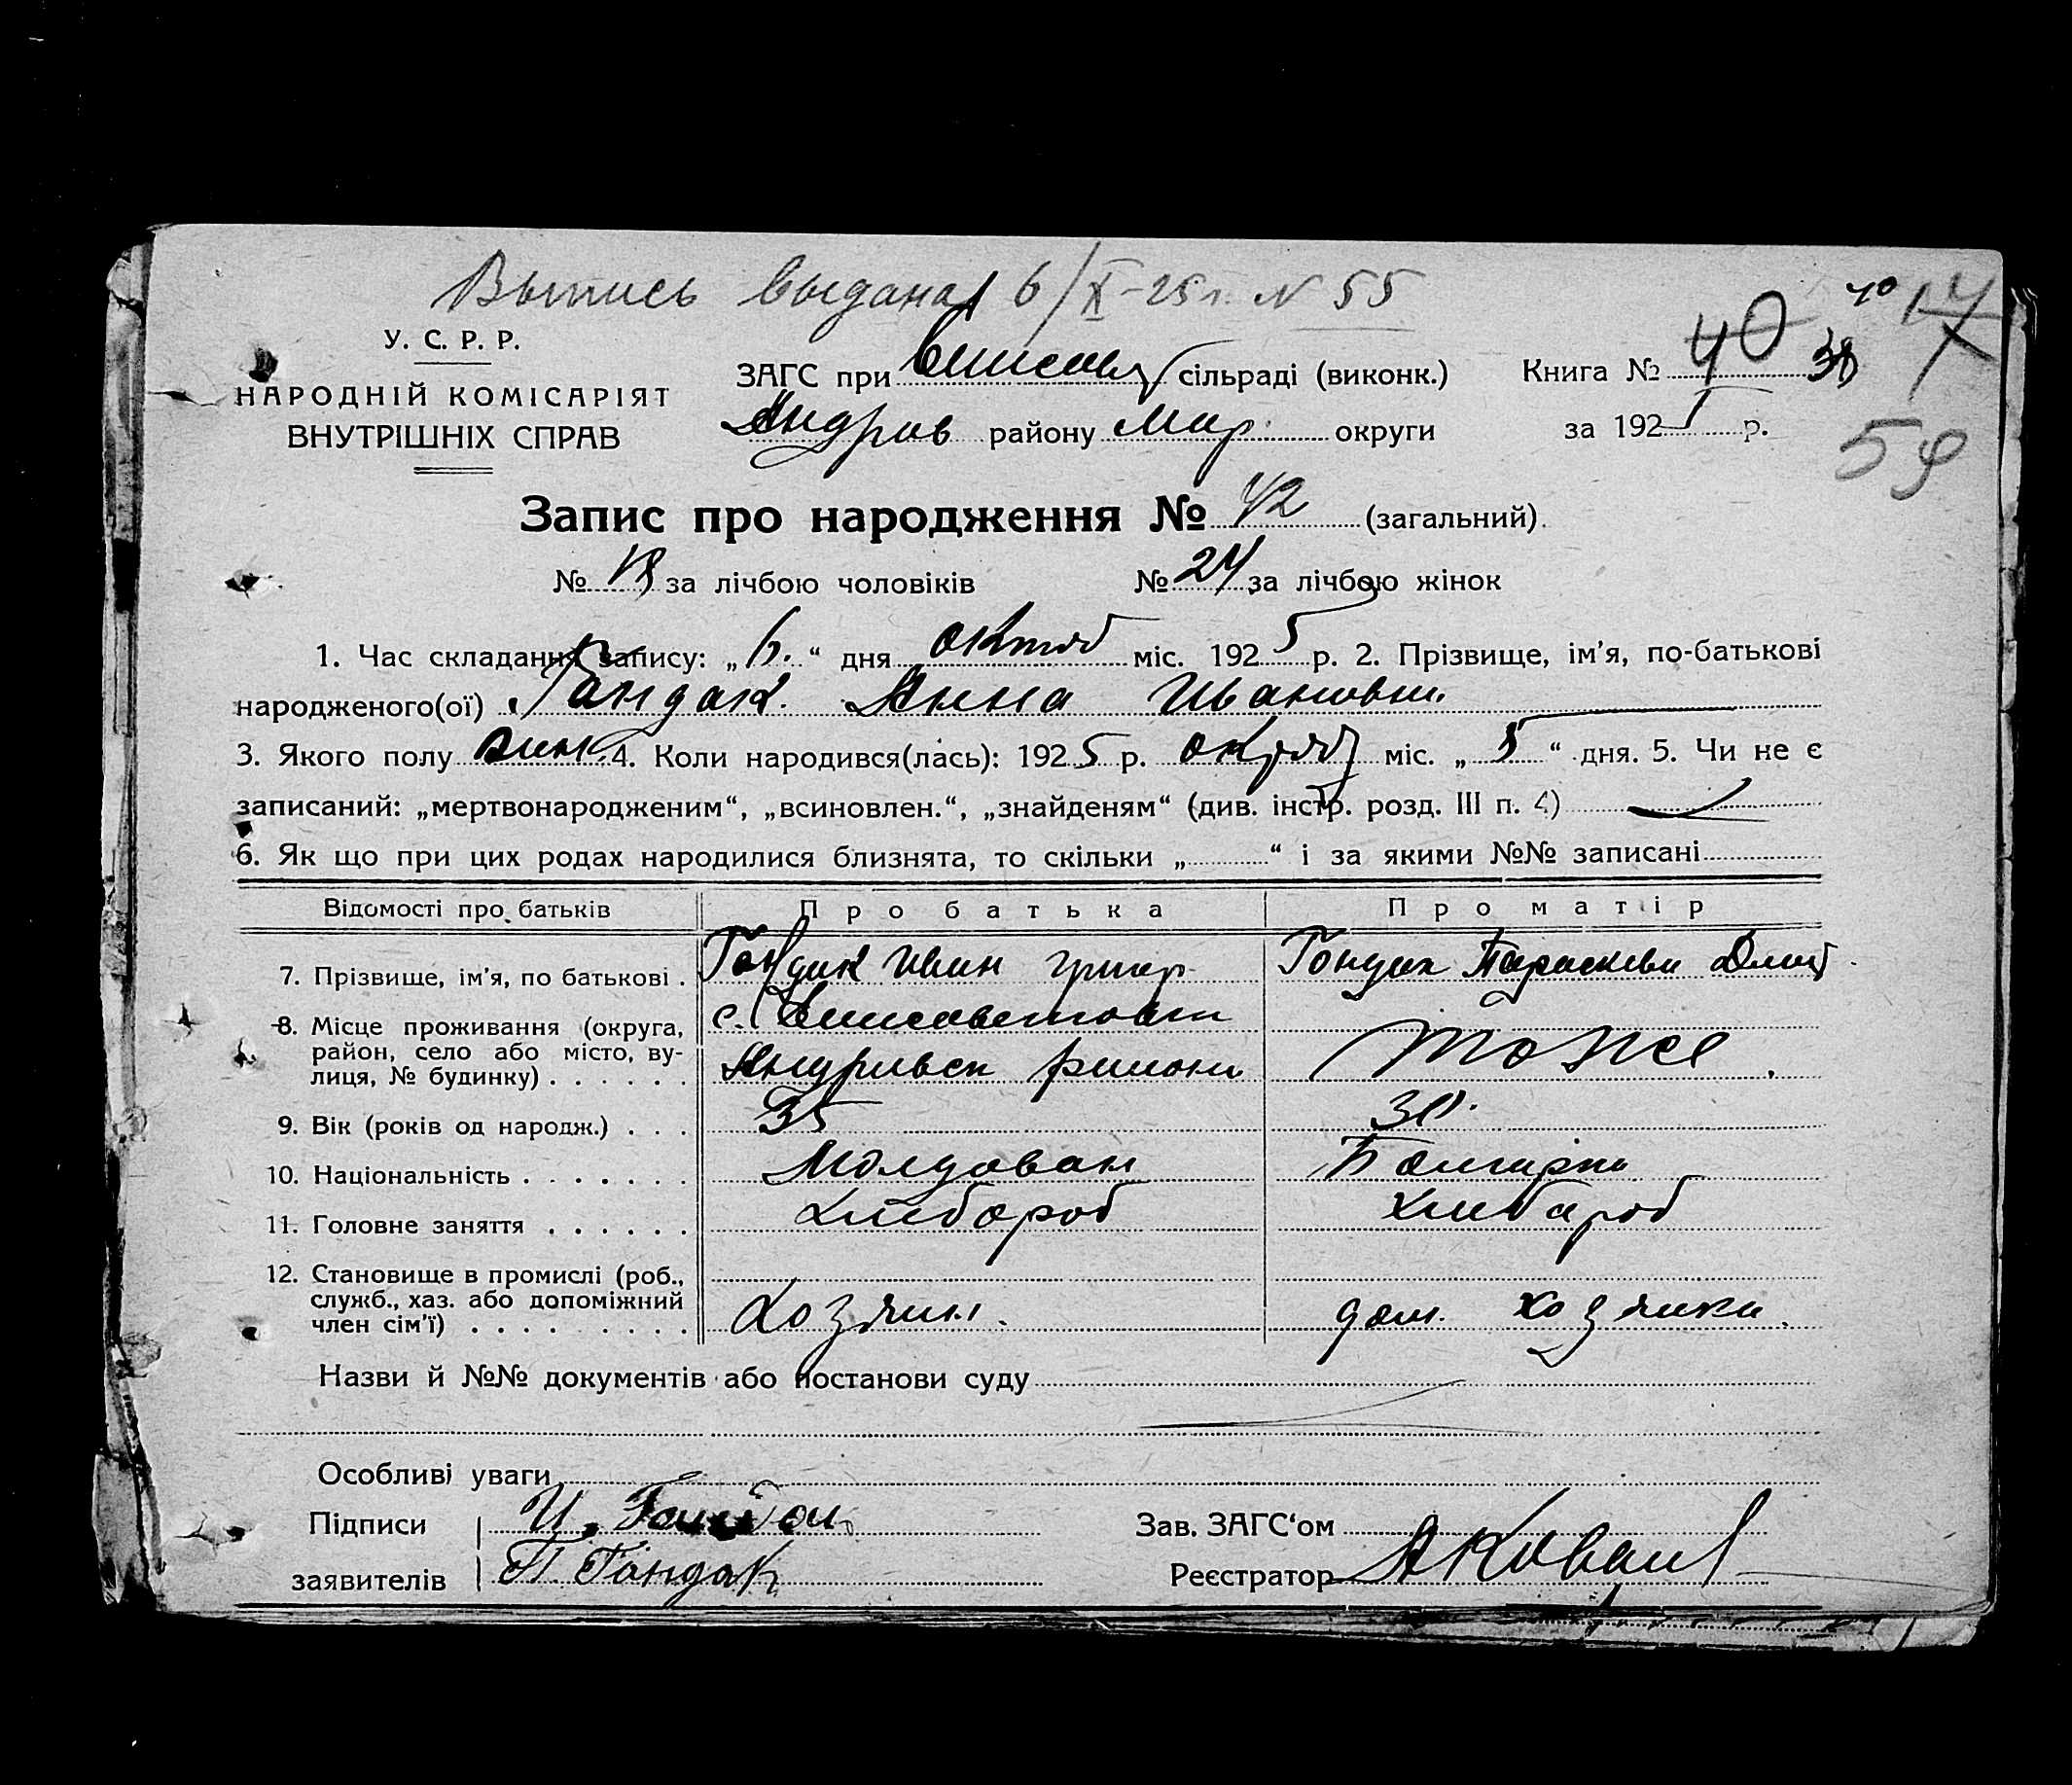 Выпись выдана 6/X-25 г. N 55
У. С. Р. Р.
НАРОДНІЙ КОМІСАРІЯТ
ВНУТРІШНІХ СПРАВ
ЗАГС при сільраді (виконк.)
Андров району Мар. округи
Книга № 40 38
40 17
за 1925 р.
59
Запис про народження № 42 (загальний).
№ 18 за лічбою чоловіків № 24 за лічбою жінок
1. Час складання запису: „6.“ дня октяб міс. 1925 р. 2. Прізвище, ім’я, по-батькові
народженого(ої) Гандак. Анна Ивановн.
3. Якого полу жен. 4. Коли народився(лась): 1925 р. октяб міс. „5“ дня. 5. Чи не є
записаний: „мертвонародженим“, „всиновлен.“, „знайденям“ (див. інстр. розд. III п. 4)
6. Як що при цих родах народилися близнята, то скільки „ “ і за якими №№ записані
Відомості про батьків Про батька Про матір
7. Прізвище, ім’я, по батькові . Гондак Иван Григор. Гондак Параскева Дмит.
8. Місце проживання (округа, с. Елисаветовки
район, село або місто, ву- Тоже.
лиця, № будинку) . . . . . . Андривск района
9. Вік (років од народж.) . . . 35 30.
10. Національність . . . . . . . Молдован Болгарка
11. Головне заняття . . . . . . Хлибороб Хлибароб
12. Становище в промислі (роб.,
служб., хаз. або допоміжний
член сім’ї) . . . . . . . . . Хозяин. дом. хозяика.
Назви й №№ документів або постанови суду
Особливі уваги
Підписи И. Гондак Зав. ЗАГС‘ом
заявителів П. Гандак Реєстратор АКовал